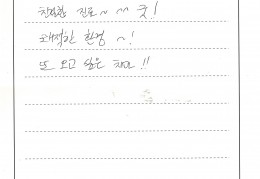 친절한 진료~ ~~ 굿!
쾌적한 환경 ~!
또 오고 싶은 치과!!